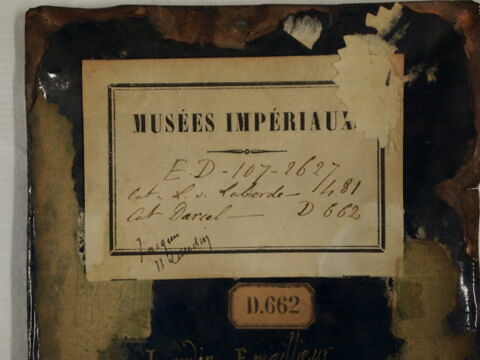 MUSÉES IMPÉRIAUX
E.D-107-2627
Cat. L. de Laborde - 481
Cat Darcel - D 662
Jacques
II Laudin
D.662
Laudin Emaillieur